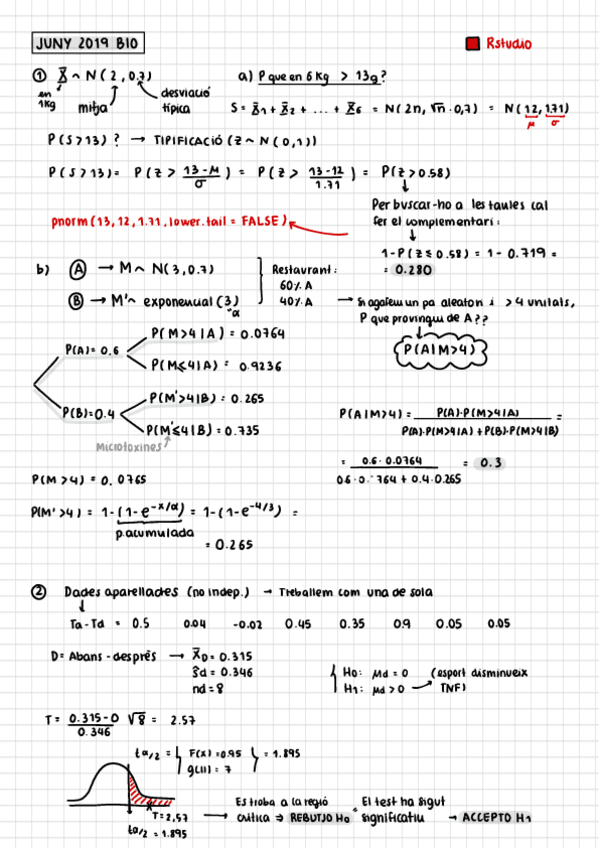 JUNY 2019 BIO
Rstudio
① X̄ ~ N(2,0.7)
en 1Kg
mitja
desviació típica
a) P que en 6 Kg > 13g?
S = X̄1 + X̄2 + ... + X̄6 = N(2n, √n · 0,7) = N(12,1.71)
μ σ
P(S>13) ? → TIPIFICACIÓ (Z ~ N(0,1))
P(S>13) = P(Z > 13-μ/σ) = P(Z > 13-12/1.71) = P(Z > 0.58)
Per buscar-ho a les taules cal
fer el complementari:
pnorm(13, 12, 1.71, lower.tail = FALSE)
1-P(Z≤0.58) = 1-0.719 =
= 0.280
b) Ⓐ → M ~ N(3,0.7)
Ⓑ → M' ~ exponencial (3)
α
Restaurant:
60% A
40% A
→ Si agafem un pa aleatori i >4 unitats,
P que provingui de A??
P(A|M>4)
P(A) = 0.6
P(M>4|A) = 0.0764
P(M≤4|A) = 0.9236
P(B)=0.4
P(M'>4|B) = 0.265
P(M'≤4|B) = 0.735
Micotoxines
P(A|M>4) = P(A)·P(M>4|A) / P(A)·P(M>4|A) + P(B)·P(M>4|B) =
= 0.6 · 0.0764 / 0.6 · 0.0764 + 0.4 · 0.265 = 0.3
P(M>4) = 0.0765
P(M'>4) = 1-(1-e^-x/α) = 1-(1-e^-4/3) =
p.acumulada
= 0.265
② Dades aparellades (no indep.) → Treballem com una de sola
Ta-Td = 0.5 0.04 -0.02 0.45 0.35 0.9 0.05 0.05
D = Abans - després → X̄D = 0.315
Ŝd = 0.346
nd = 8
H0: μd = 0 (esport disminueix
H1: μd > 0 → TNF)
T = 0.315-0/0.346 √8 = 2.57
tα/2 = F(x) = 0.95 = 1.895
g(ll) = 7
T=2,57
tα/2 = 1.895
Es troba a la regió
crítica ⇒ REBUTJO H0
El test ha sigut
significatiu → ACCEPTO H1